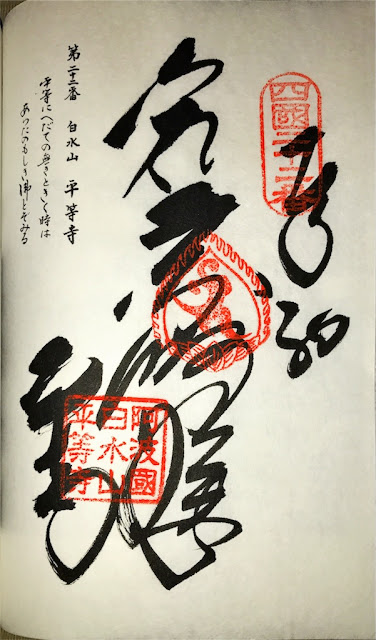 四國二十二番
奉納
平等寺
阿波國
白水山
平等寺
第二十二番 白水山 平等寺
平等にへだての無きときく時は
あらたのもしき佛とぞみる